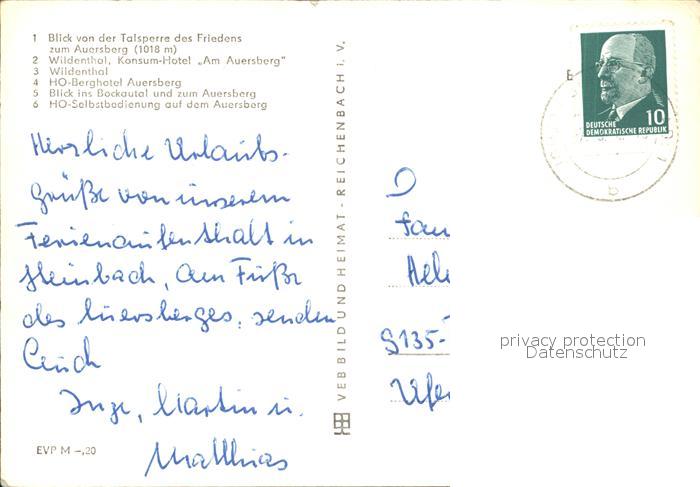 1 Blick von der Talsperre des Friedens
zum Auersberg (1018 m)
2 Wildenthal, Konsum-Hotel „Am Auersberg"
3 Wildenthal
4 HO-Berghotel Auersberg
5 Blick ins Bockautal und zum Auersberg
6 HO-Selbstbedienung auf dem Auersberg
Herzliche Urlaubs-
grüße von unserem
Ferienaufenthalt in
Steinbach, am Fuße
des Auersberges, senden
Euch
Inge, Martin u.
Matthias
EVP M –,20
VEB BILD UND HEIMAT · REICHENBACH i. V.
10
DEUTSCHE
DEMOKRATISCHE REPUBLIK
b
Fam
Hele
9135-
privacy protection
Datenschutz